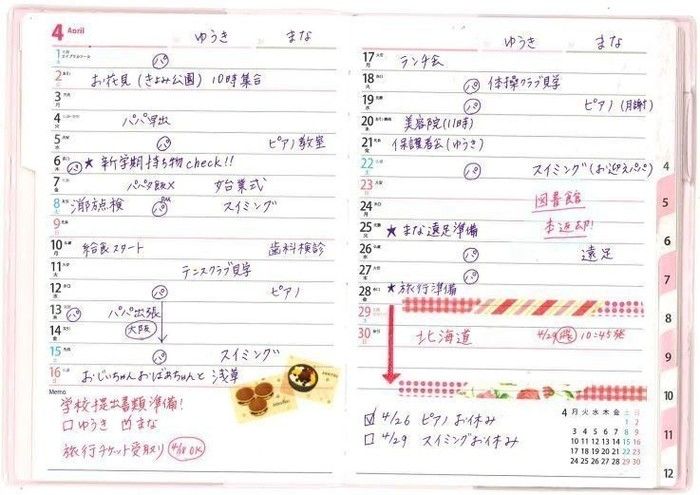 4 April
ゆうき まな
1 パ
2 お花見(きよみ公園) 10時集合
3
4 パパ早出
5 パ ピアノ教室
6 パ ★新学期持ち物check!!
7 パパ夕飯× 始業式
8 消防点検 パ スイミング
9
10 給食スタート 歯科検診
11 テニスクラブ見学
12 パ ピアノ
13 パ パパ出張
14 大阪
15 パ スイミング
16 おじいちゃんおばあちゃんと浅草
Memo
学校提出書類準備!
ゆうき まな
旅行チケット受取り OK
ゆうき まな
17 ランチ会
18 パ 体操クラブ見学
19 パ ピアノ(月謝)
20 美容院(11時)
21 保護者会(ゆうき)
22 パ スイミング(お迎えパパ)
23
24 図書館
本返却!
25 ★まな遠足準備
26 パ 遠足
27 パ
28 ★旅行準備
29
30 北海道 4/29 10:45発
☑ 4/26 ピアノお休み
□ 4/29 スイミングお休み
4 月 火 水 木 金 土 日
1 2
3 4 5 6 7 8 9
10 11 12 13 14 15 16
17 18 19 20 21 22 23
24 25 26 27 28 29 30
4
5
6
7
8
9
10
11
12